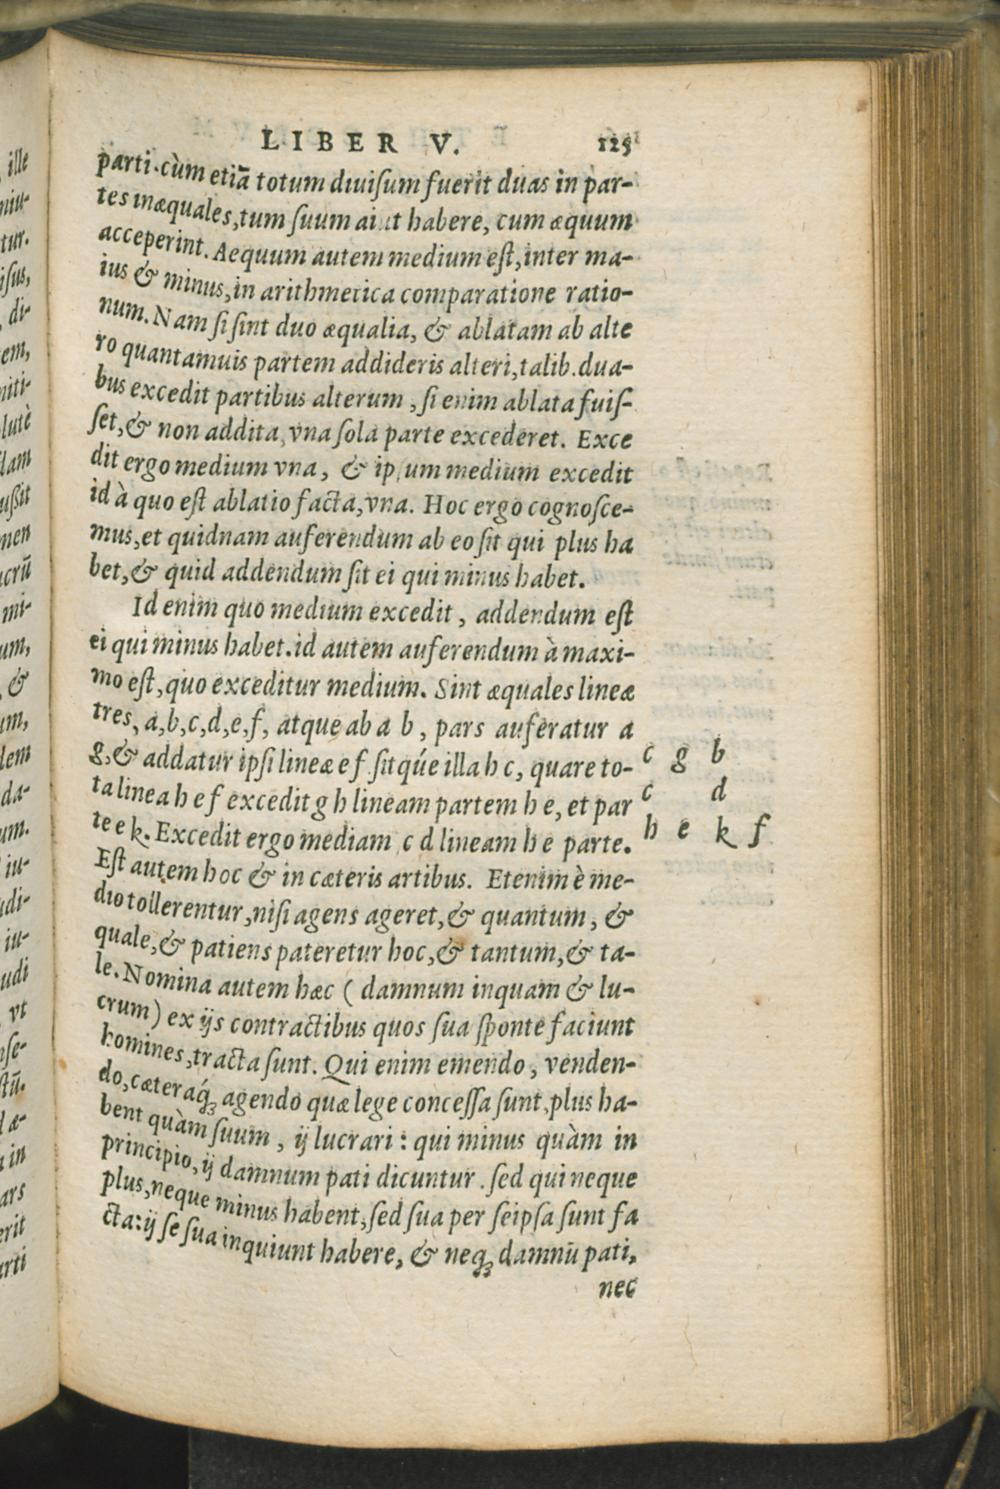 LIBER V. 125
parti. cùm etiā totum diuiſum fuerit duas in par-
tes inæquales, tum ſuum aiunt habere, cum æquum
acceperint. Aequum autem medium eſt, inter ma-
ius & minus, in arithmetica comparatione ratio-
num. Nam ſi ſint duo æqualia, & ablatam ab alte
ro quantamuis partem addideris alteri, talib. dua-
bus excedit partibus alterum, ſi enim ablata fuiſ-
ſet, & non addita, vna ſola parte excederet. Exce
dit ergo medium vna, & ipſum medium excedit
id à quo eſt ablatio facta, vna. Hoc ergo cognoſce-
mus, et quidnam auferendum ab eo ſit qui plus ha
bet, & quid addendum ſit ei qui minus habet.
Id enim quo medium excedit, addendum eſt
ei qui minus habet. id autem auferendum à maxi-
mo eſt, quo exceditur medium. Sint æquales lineæ
tres, a, b, c, d, e, f, atque ab a b, pars auferatur a
g, & addatur ipſi lineæ e f ſitqúe illa h c, quare to-
ta linea h e f excedit g h lineam partem h e, et par
te e k. Excedit ergo mediam c d lineam h e parte.
Eſt autem hoc & in cæteris artibus. Etenim è me-
dio tollerentur, niſi agens ageret, & quantum, &
quale, & patiens pateretur hoc, & tantum, & ta-
le. Nomina autem hæc ( damnum inquam & lu-
crum) ex ijs contractibus quos ſua ſponte faciunt
homines, tracta ſunt. Qui enim emendo, venden-
do, cæteraq́; agendo quæ lege conceſſa ſunt, plus ha-
bent quàm ſuum, ij lucrari: qui minus quàm in
principio, ij damnum pati dicuntur. ſed qui neque
plus, neque minus habent, ſed ſua per ſeipſa ſunt fa
cta: ij ſe ſua inquiunt habere, & neq; damnū pati,
nec
c g b
c d
h e k f